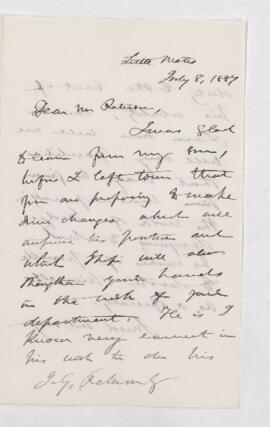 Little Metis
July 8, 1887
Dear Mr Paterson,
I was glad
to learn from my son,
before I left town that
you are proposing to make
some changes which will
improve his position and
which I hope will also
strengthen your hands
in the work of your
department. He is I
know very earnest in
his wish to do his